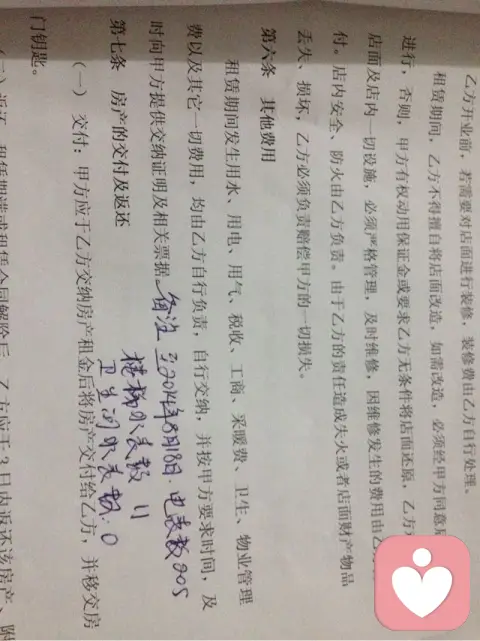 乙方开业前，若需要对店面进行装修，装修费由乙方自行处理。
租赁期间，乙方不得擅自将店面改造，如需改造，必须经甲方同意
进行，否则，甲方有权动用保证金或要求乙方无条件将店面还原，乙方
店面及店内一切设施，必须严格管理，及时维修，因维修发生的费用由乙
付。店内安全、防火由乙方负责。由于乙方的责任造成失火或者店面财产物品
丢失、损坏，乙方必须负责赔偿甲方的一切损失。
第六条 其他费用
租赁期间发生用水、用电、用气、税收、工商、采暖费、卫生、物业管理
费以及其它一切费用，均由乙方自行负责，自行交纳，并按甲方要求时间，及
时向甲方提供交纳证明及相关票据。备注 至2014年8月8日．电表数205
楼梯水表数 11
卫生间水表数．0
第七条 房产的交付及返还
（一）交付：甲方应于乙方交纳房产租金后将房产交付给乙方，并移交房
门钥匙。
（二）返还：租赁期满或租赁合同解除后，乙方应于3日内返还该房产、附